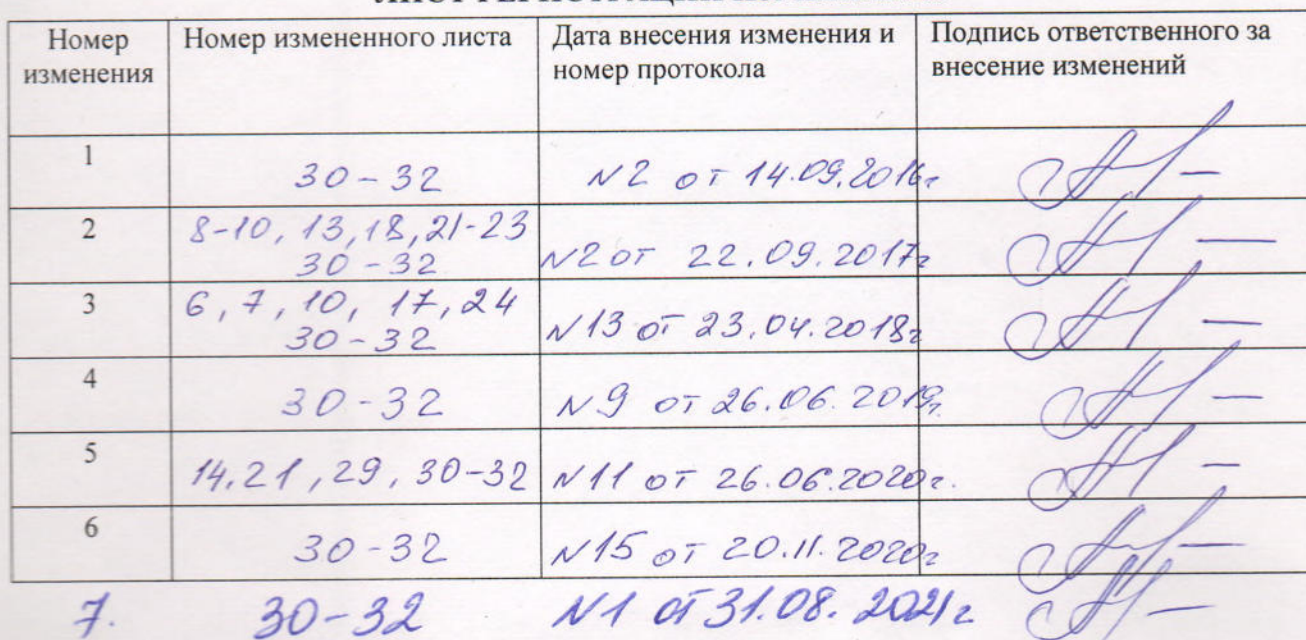 ЛИСТ РЕГИСТРАЦИИ ИЗМЕНЕНИЙ
Номер изменения
Номер измененного листа
Дата внесения изменения и номер протокола
Подпись ответственного за внесение изменений
1
30-32
N2 от 14.09.2016г
2
8-10, 13, 18, 21-23
30-32
N2 от 22.09.2017г
3
6, 7, 10, 17, 24
30-32
N13 от 23.04.2018г
4
30-32
N9 от 26.06.2019г.
5
14, 21, 29, 30-32
N11 от 26.06.2020г.
6
30-32
N15 от 20.11.2020г
7.
30-32
N1 от 31.08.2021г